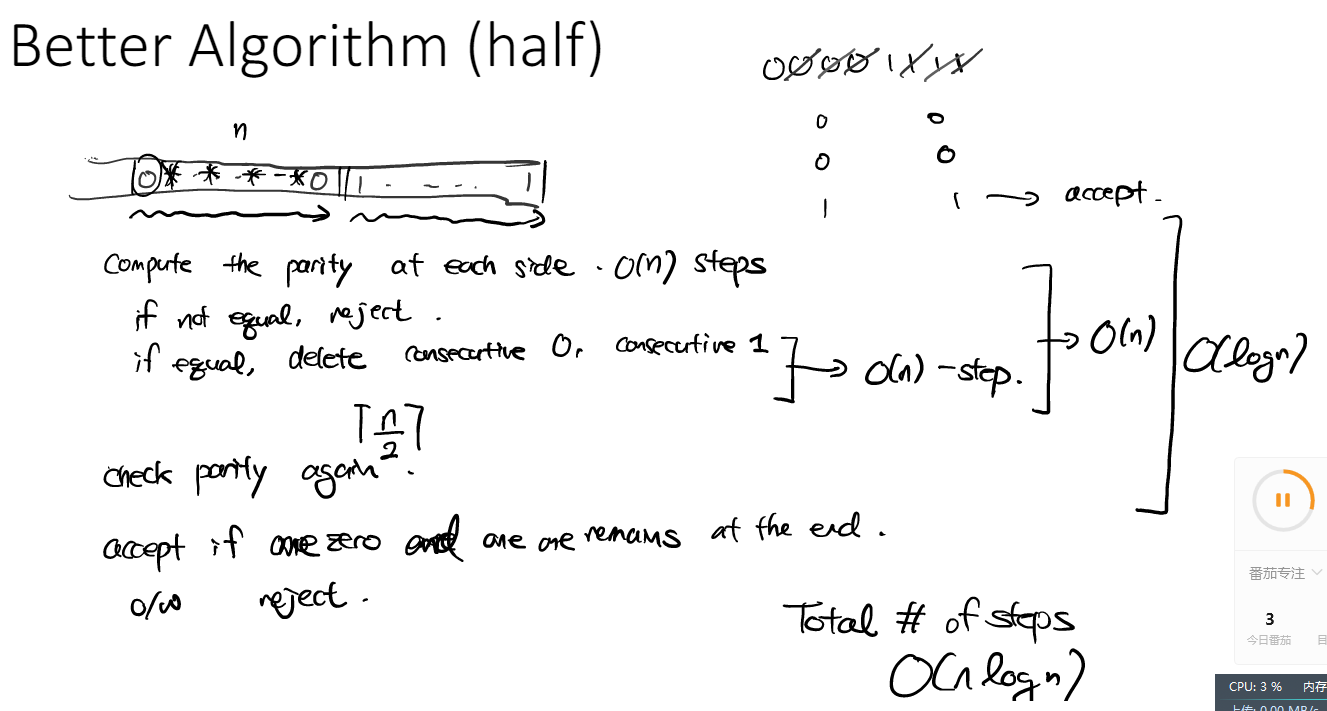 Better Algorithm (half)
0000 1111
n
0 * * * * 0 1 - - - . . 1
0 0
0 0
1 1 → accept.
Compute the parity at each side. O(n) steps
if not equal, reject.
if equal, delete consecutive 0, consecutive 1
→ O(n)-step.
→ O(n)
O(logn)
⌈n/2⌉
check parity again.
accept if one zero and one one remains at the end.
o/w reject.
Total # of steps
O(n logn)
番茄专注
3
今日番茄 目
CPU: 3 % 内存
上传: 0.00 MB/s